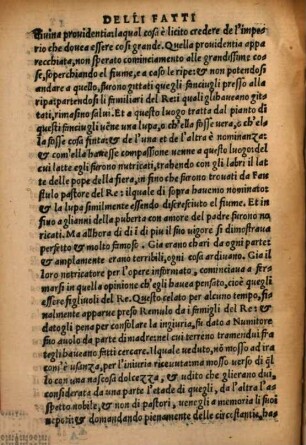 DELLI FATTI
diuina prouidentia: laqual cosa è licito credere de l'impe
rio che douea essere cosi grande. Quella prouidentia appa
recchiata, non sperato cominciamento alle grandissime co
se, soperchiando el fiume, e a caso le ripe: & non potendosi
andare a quello, furono gittati quegli fanciugli presso alla
ripa: partendosi li familiari del Re: i quali gli haueano gits
tati, rimasino salui. Et a questo luogo tratta dal pianto di
questi fanciugli uēne una lupa, o ch'ella fosse uera, o ch'el
la fosse cosa finta: & de l'una et de l'altra è nominanza:
& com'ella hauesse compassione uenne a questo luogo: del
cui latte egli furono nutricati, trahendo con gli labri il lat
te delle pope della fiera, in fino che furono trouati da Fau
stulo pastore del Re: ilquale di sopra hauemo nominato:
& la lupa similmente essendo discresciuto el fiume. Et in
fino a glianni della puberta con amore del padre furono no
ricati. Ma allhora di di in di piu il suo uigore si dimostraua
perfetto & molto famoso. Gia erano chari da ogni parte:
& amplamente erano terribili, ogni cosa ardiuano. Gia il
loro notricatore per l'opere informato, cominciaua a fer
marsi in quella opinione ch'egli hauea pensato, cioè quegli
essere figliuoli del Re. Questo celato per alcuno tempo, fi
nalmente apparue preso Remulo da i famigli del Re: &
datogli pena per consolare la ingiuria, fu dato a Numitore
suo auolo da parte di madre: nel cui terreno temendui fra
tegli haueano fatti cercare. Ilquale ueduto, nō mosso ad ira
com'è usanza, per l'iniuria riceuuta: ma mosso uerso di ql
lo con una nascosa dolcezza, & udito che glierano dui,
considerata da una parte l'etade di quegli, da l'altra l'as
spetto nobile, & non di pastori, uenegli a memoria li suoi
nepoti: & domandando pienamente delle circostantie, has